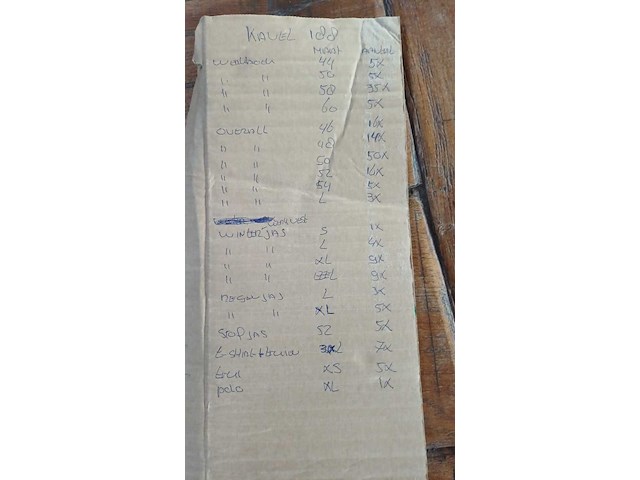 KAVEL 188
MAAT AANTAL
44 5X
" " 50 5X
" " 58 35X
" " 60 5X
OVERALL 46 16X
" " 48 14X
" " 50 50X
" " 52 16X
" " 54
" " L 3X
WINTERJAS S 1X
" " L 4X
" " XL 9X
" " 9X
REGENJAS L 3X
" " XL 5X
STOFJAS 52 5X
t-shirt + 7X
XS 5X
polo XL 1X